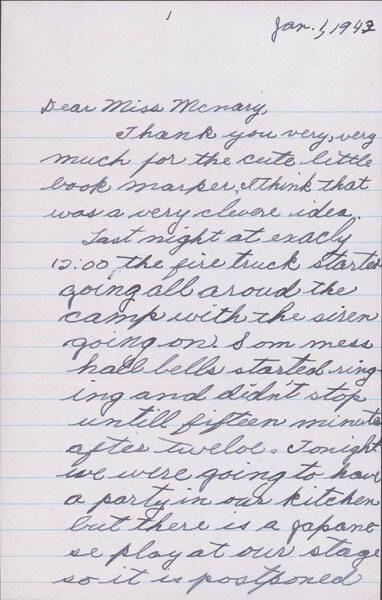 1
Jan. 1, 1943
Dear Miss Mcnary,
Thank you very, very
much for the cute little
book marper, I think that
was a very clevere idea.
Last night at exacly
12:00 the fire truck started
going all aroud the
camp with the siren
going on. Som mess
hall bells started ring-
ing and didn't stop
untill fifteen minute
after twelve. Tonight
we were going to have
a party in our kitchen
but there is a Japane
se play at our stage
so it is postponed